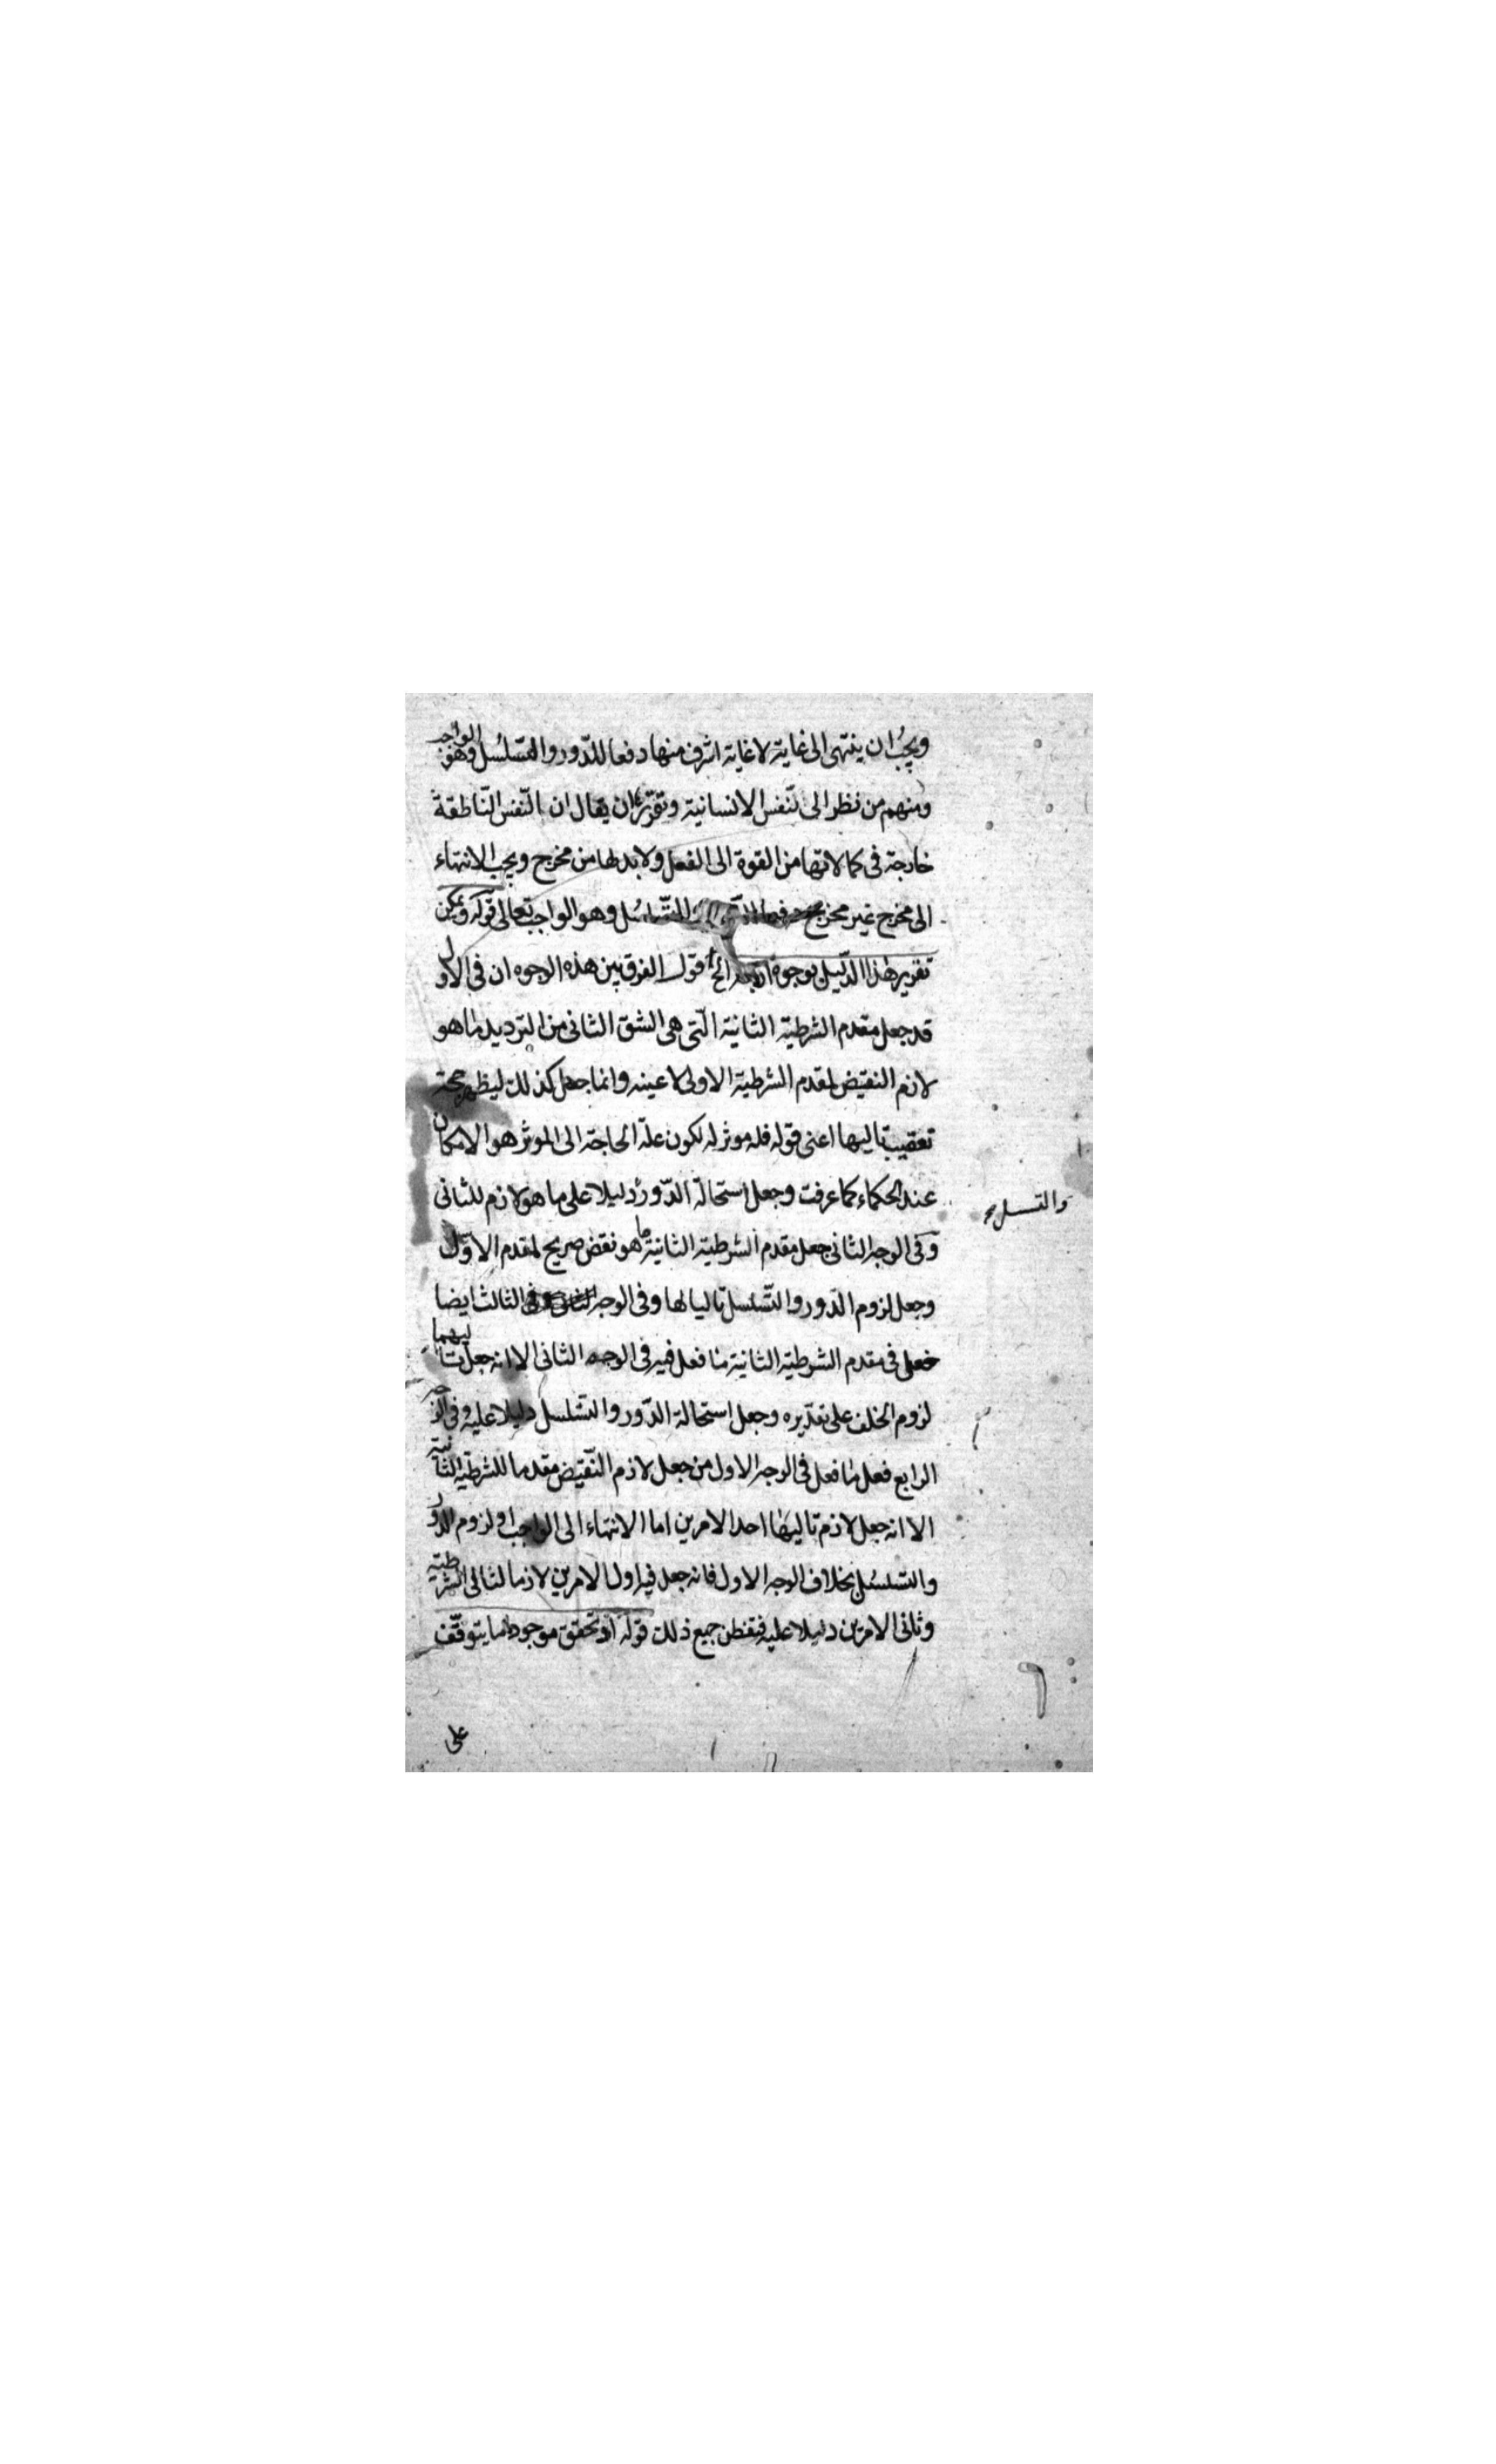 ويجبُ ان ينتهى الى غاية لا غاية اشرف منها دفعا للدّور والتسلسُل وهو الواجب
ومنهم من نظر الى النّفس الانسانية وتقريره ان يقال ان النّفس النّاطقة
خارجة فى كمالاتها من القوة الى الفعل ولا بد لها من مخرج ويجب الانتهاء
الى مخرج غير مخرج للتّسلسُل وهو الواجب تعالى قوله ويمكن
تقرير هذا الدّليل بوجوه اربعة الخ اقول الفرق بين هذه الوجوه ان فى الاول
قد جعل مقدم الشرطية الثانية الّتى هى الشق الثانى من الترديد ما هو
لازم النقيض لمقدم الشرطية الاولى لا عينه وانما جعل كذلك ليظهر صحة
تعقيب تاليها اعنى قوله فله موثر له لكون علّة الحاجة الى الموثر هو الامكان
عند الحكماء كما عرفت وجعل استحالة الدّور دليلا على ما هو لازم للثانى
والتسلسل
وفى الوجه الثانى جعل مقدم الشرطية الثانية ما هو نقض صريح لمقدم الاوّل
وجعل لزوم الدّور والتّسلسل تاليا لها وفى الوجه الثالث ايضا
فعل فى مقدم الشرطية الثانية ما فعل فيه فى الوجه الثانى الا انه جعل تاليهما
لزوم الخلف على تقديره وجعل استحالة الدّور والتسلسل دليلا عليه وفى الوجه
الرابع فعل ما فعل فى الوجه الاول من جعل لازم النّقيض مقدما للشرطية الثانية
الا انه جعل لازم تاليها احد الامرين اما الانتهاء الى الواجب او لزوم الدور
والتسلسُل بخلاف الوجه الاول فانه جعل فيه اول الامرين لازما لتالى الشرطية
وثانى الامرين دليلا عليه فتفطن جميع ذلك قوله او تحقق موجود ما يتوقّف
على